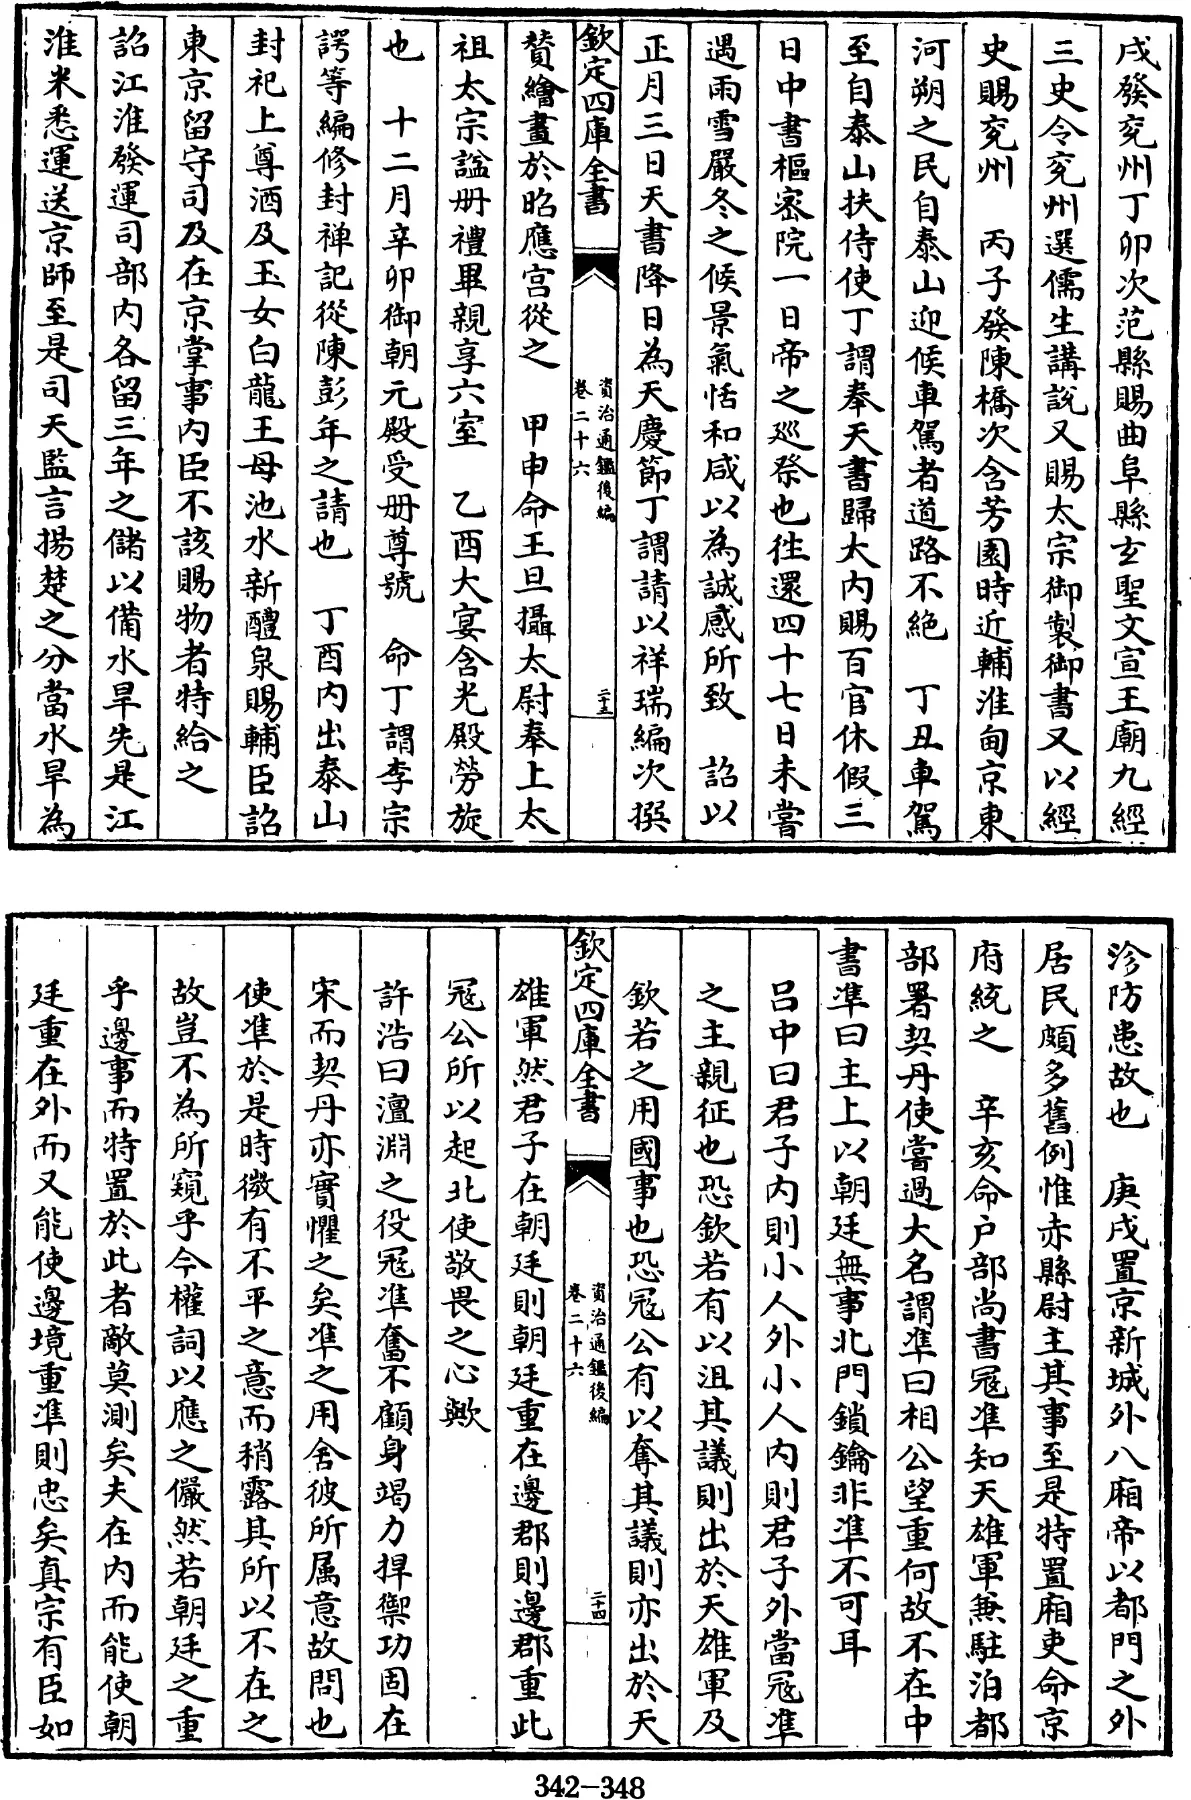 戌發兖州丁卯次范縣賜曲阜縣玄聖文宣王廟九經
三史令兖州選儒生講説又賜太宗御製御書又以經
史賜兖州　丙子發陳橋次含芳園時近輔淮甸京東
河朔之民自泰山迎候車駕者道路不絶　丁丑車駕
至自泰山扶侍使丁謂奉天書歸大内賜百官休假三
日中書樞密院一日帝之廵祭也往還四十七日未嘗
遇雨雪嚴冬之候景氣恬和咸以為誠感所致　詔以
正月三日天書降日為天慶節丁謂請以祥瑞編次撰
欽定四庫全書　資治通鑑後編　卷二十六　二十三
賛繪畫於昭應宫從之　甲申命王旦攝太尉奉上太
祖太宗諡册禮畢親享六室　乙酉大宴含光殿勞旋
也　十二月辛卯御朝元殿受册尊號　命丁謂李宗
諤等編修封禅記從陳彭年之請也　丁酉内出泰山
封祀上尊酒及玉女白龍王母池水新醴泉賜輔臣詔
東京留守司及在京掌事内臣不該賜物者特給之
詔江淮發運司部内各留三年之儲以備水旱先是江
淮米悉運送京師至是司天監言揚楚之分當水旱為
沴防患故也　庚戌置京新城外八廂帝以都門之外
居民頗多舊例惟赤縣尉主其事至是特置廂吏命京
府統之　辛亥命户部尚書冦準知天雄軍兼駐泊都
部署契丹使嘗過大名謂準曰相公望重何故不在中
書準曰主上以朝廷無事北門鎖鑰非準不可耳
吕中曰君子内則小人外小人内則君子外當冦準
之主親征也恐欽若有以沮其議則出於天雄軍及
欽若之用國事也恐冦公有以奪其議則亦出於天
欽定四庫全書　資治通鑑後編　卷二十六　二十四
雄軍然君子在朝廷則朝廷重在邊郡則邊郡重此
冦公所以起北使敬畏之心歟
許浩曰澶淵之役冦準奮不顧身竭力捍禦功固在
宋而契丹亦實懼之矣準之用舍彼所属意故問也
使準於是時微有不平之意而稍露其所以不在之
故豈不為所窺乎今權詞以應之儼然若朝廷之重
乎邊事而特置於此者敵莫測矣夫在内而能使朝
廷重在外而又能使邊境重準則忠矣真宗有臣如
342-348